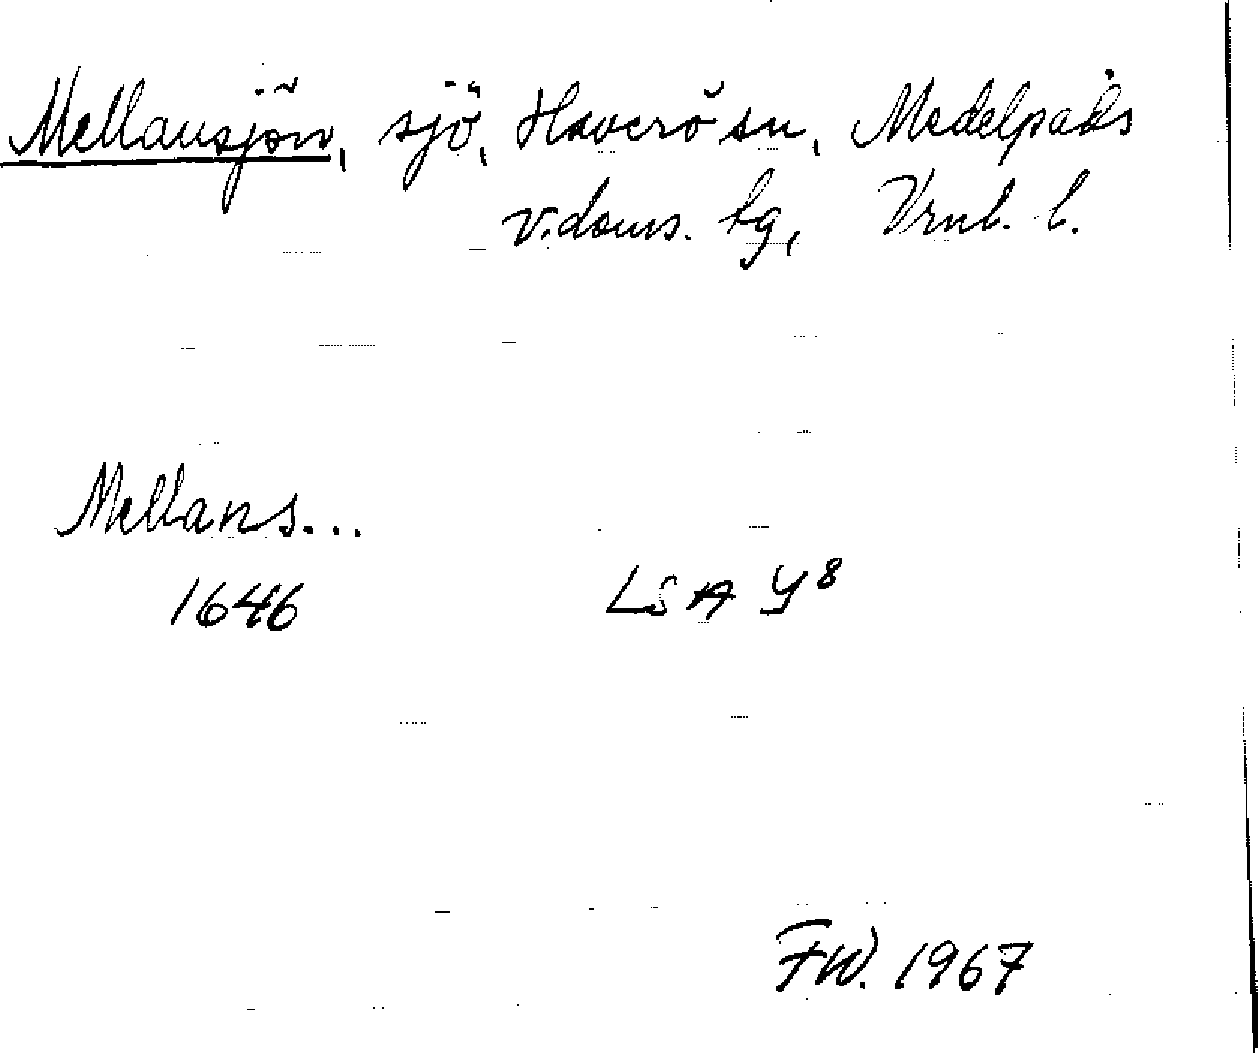 Mellansjön, sjö, Haverö sn, Medelpads
v. doms. tg, Vrnl. l.
Mellans...
1646 LSA Y8
FW. 1967